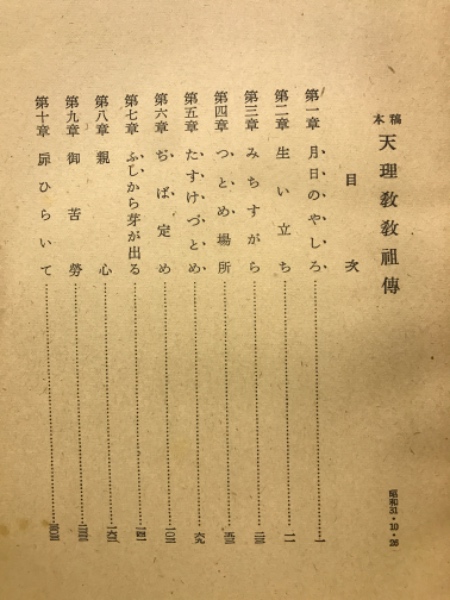 稿本 天理教教祖傳
目次
第一章 月日のやしろ 一
第二章 生い立ち 一一
第三章 みちすがら 二三
第四章 つとめ場所 五三
第五章 たすけづとめ 六九
第六章 ぢば定め 一〇三
第七章 ふしから芽が出る 一四一
第八章 親心 一六三
第九章 御苦勞
第十章 扉ひらいて
昭和31・10・26